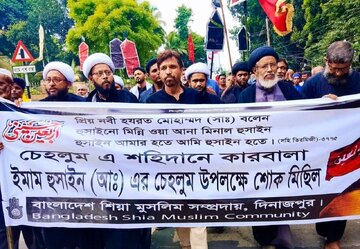 প্রিয় নবী হযরত মোহাম্মদ (সাঃ) বলেন
হুসাইনো মিন্নি ওয়া আনা মিনাল হুসাইন
হুসাইন আমার হতে আমি হুসাইন হতে।
চেহলুম এ শহিদানে কারবালা
ইমাম হুসাইন (আঃ) এর চেহলুম উপলক্ষে শোক মিছিল
বাংলাদেশ শিয়া মুসলিম সম্প্রদায়, দিনাজপুর।
Bangladesh Shia Muslim Community